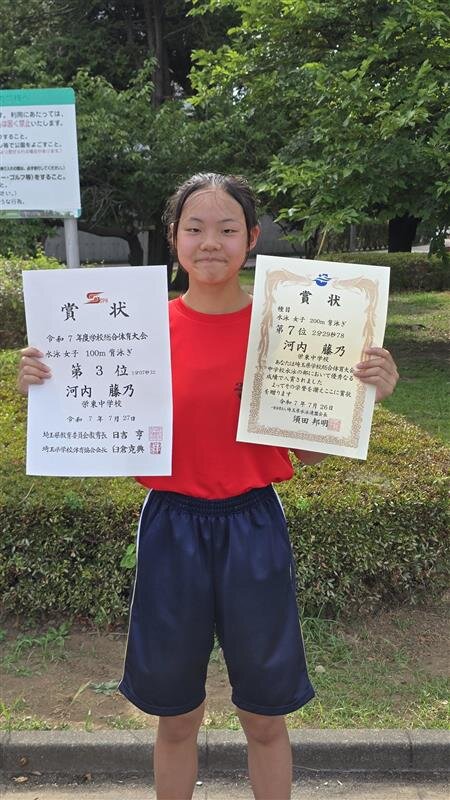 す。利用にあたっては、
は固く禁止いたします。
すること。
等で公園をよごすこと。
・ゴルフ等)をすること。
さい。)
うな行為。
賞状
令和 7 年度学校総合体育大会
水泳 女子 100m 背泳ぎ
第 3 位
河内 藤乃
栄東中学校
令和 7 年 7 月 27 日
埼玉県教育委員会教育長 日吉 亨
埼玉県学校体育協会会長 臼倉克典
賞状
種目
水泳 女子 200m 背泳ぎ
第 7 位 2分29秒78
河内 藤乃
栄東中学校
あなたは埼玉県学校総合体育大会
中学校水泳の部において優秀なる
成績で入賞されました
よってその誉を讃えここに賞状
を贈ります
令和 7 年 7 月 26 日
須田 邦明